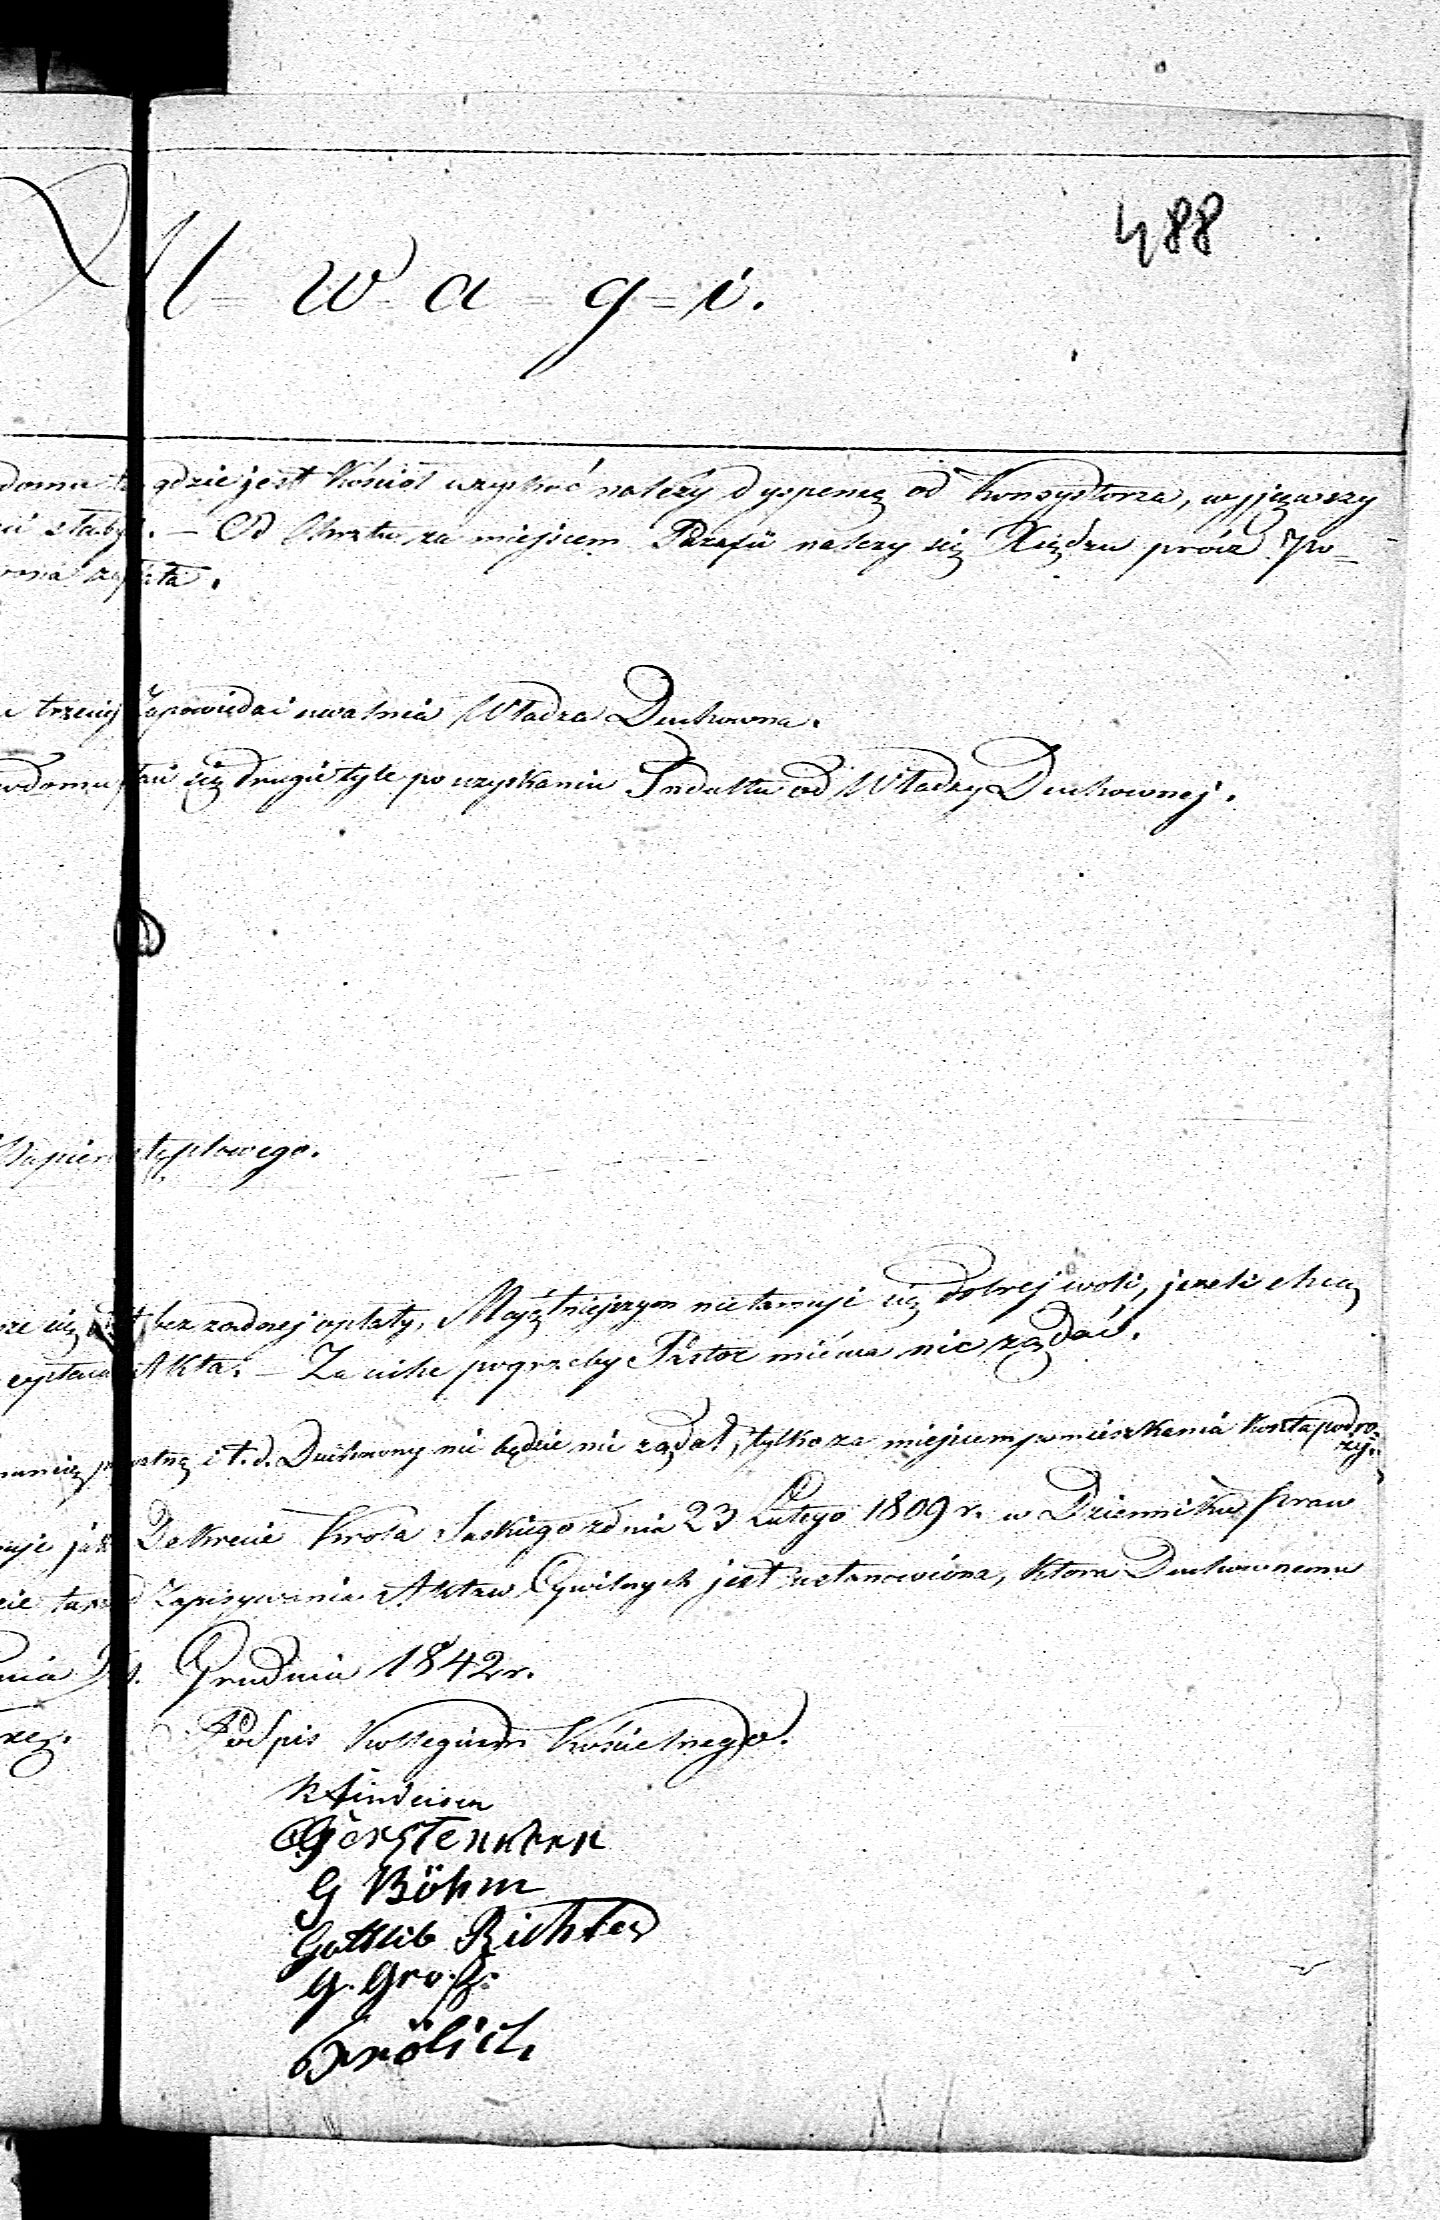 488
U = w = a = g = i.
domu gdzie jest Kościół uzyskać należy dyspensę od Konsystorza, wyjąwszy
słaby. — Od Chrztu za miejscem Parafii należy się Xiędzu prócz Po=
zapłata.
trzeciej Zapowiedzi uwalnia Władza Duchowna.
w domu się drugie tyle po uzyskaniu Indultu od Władzy Duchownej.
Papieru stęplowego.
się bez żadnej opłaty, Majętniejszym nietamuje się dobrej woli, jeżeli chcą
Akta. — Za ciche pogrzeby Pastor nie ma nic żądać.
i t. d. Duchowny nie będzie nic żądał, tylko za miejscem pomieszkania koszta podró=
ży.
Dekrecie Króla Saskiego z dnia 23 Lutego 1809 r. w Dzienniku Praw
Zapisywania Aktów Cywilnych jest ustanowiona, która Duchownemu
dnia Grudnia 1842 r.
Podpis Kollegium Kościelnego.
G Böhm
Gottlieb Richter
G. Groß.
Frölich